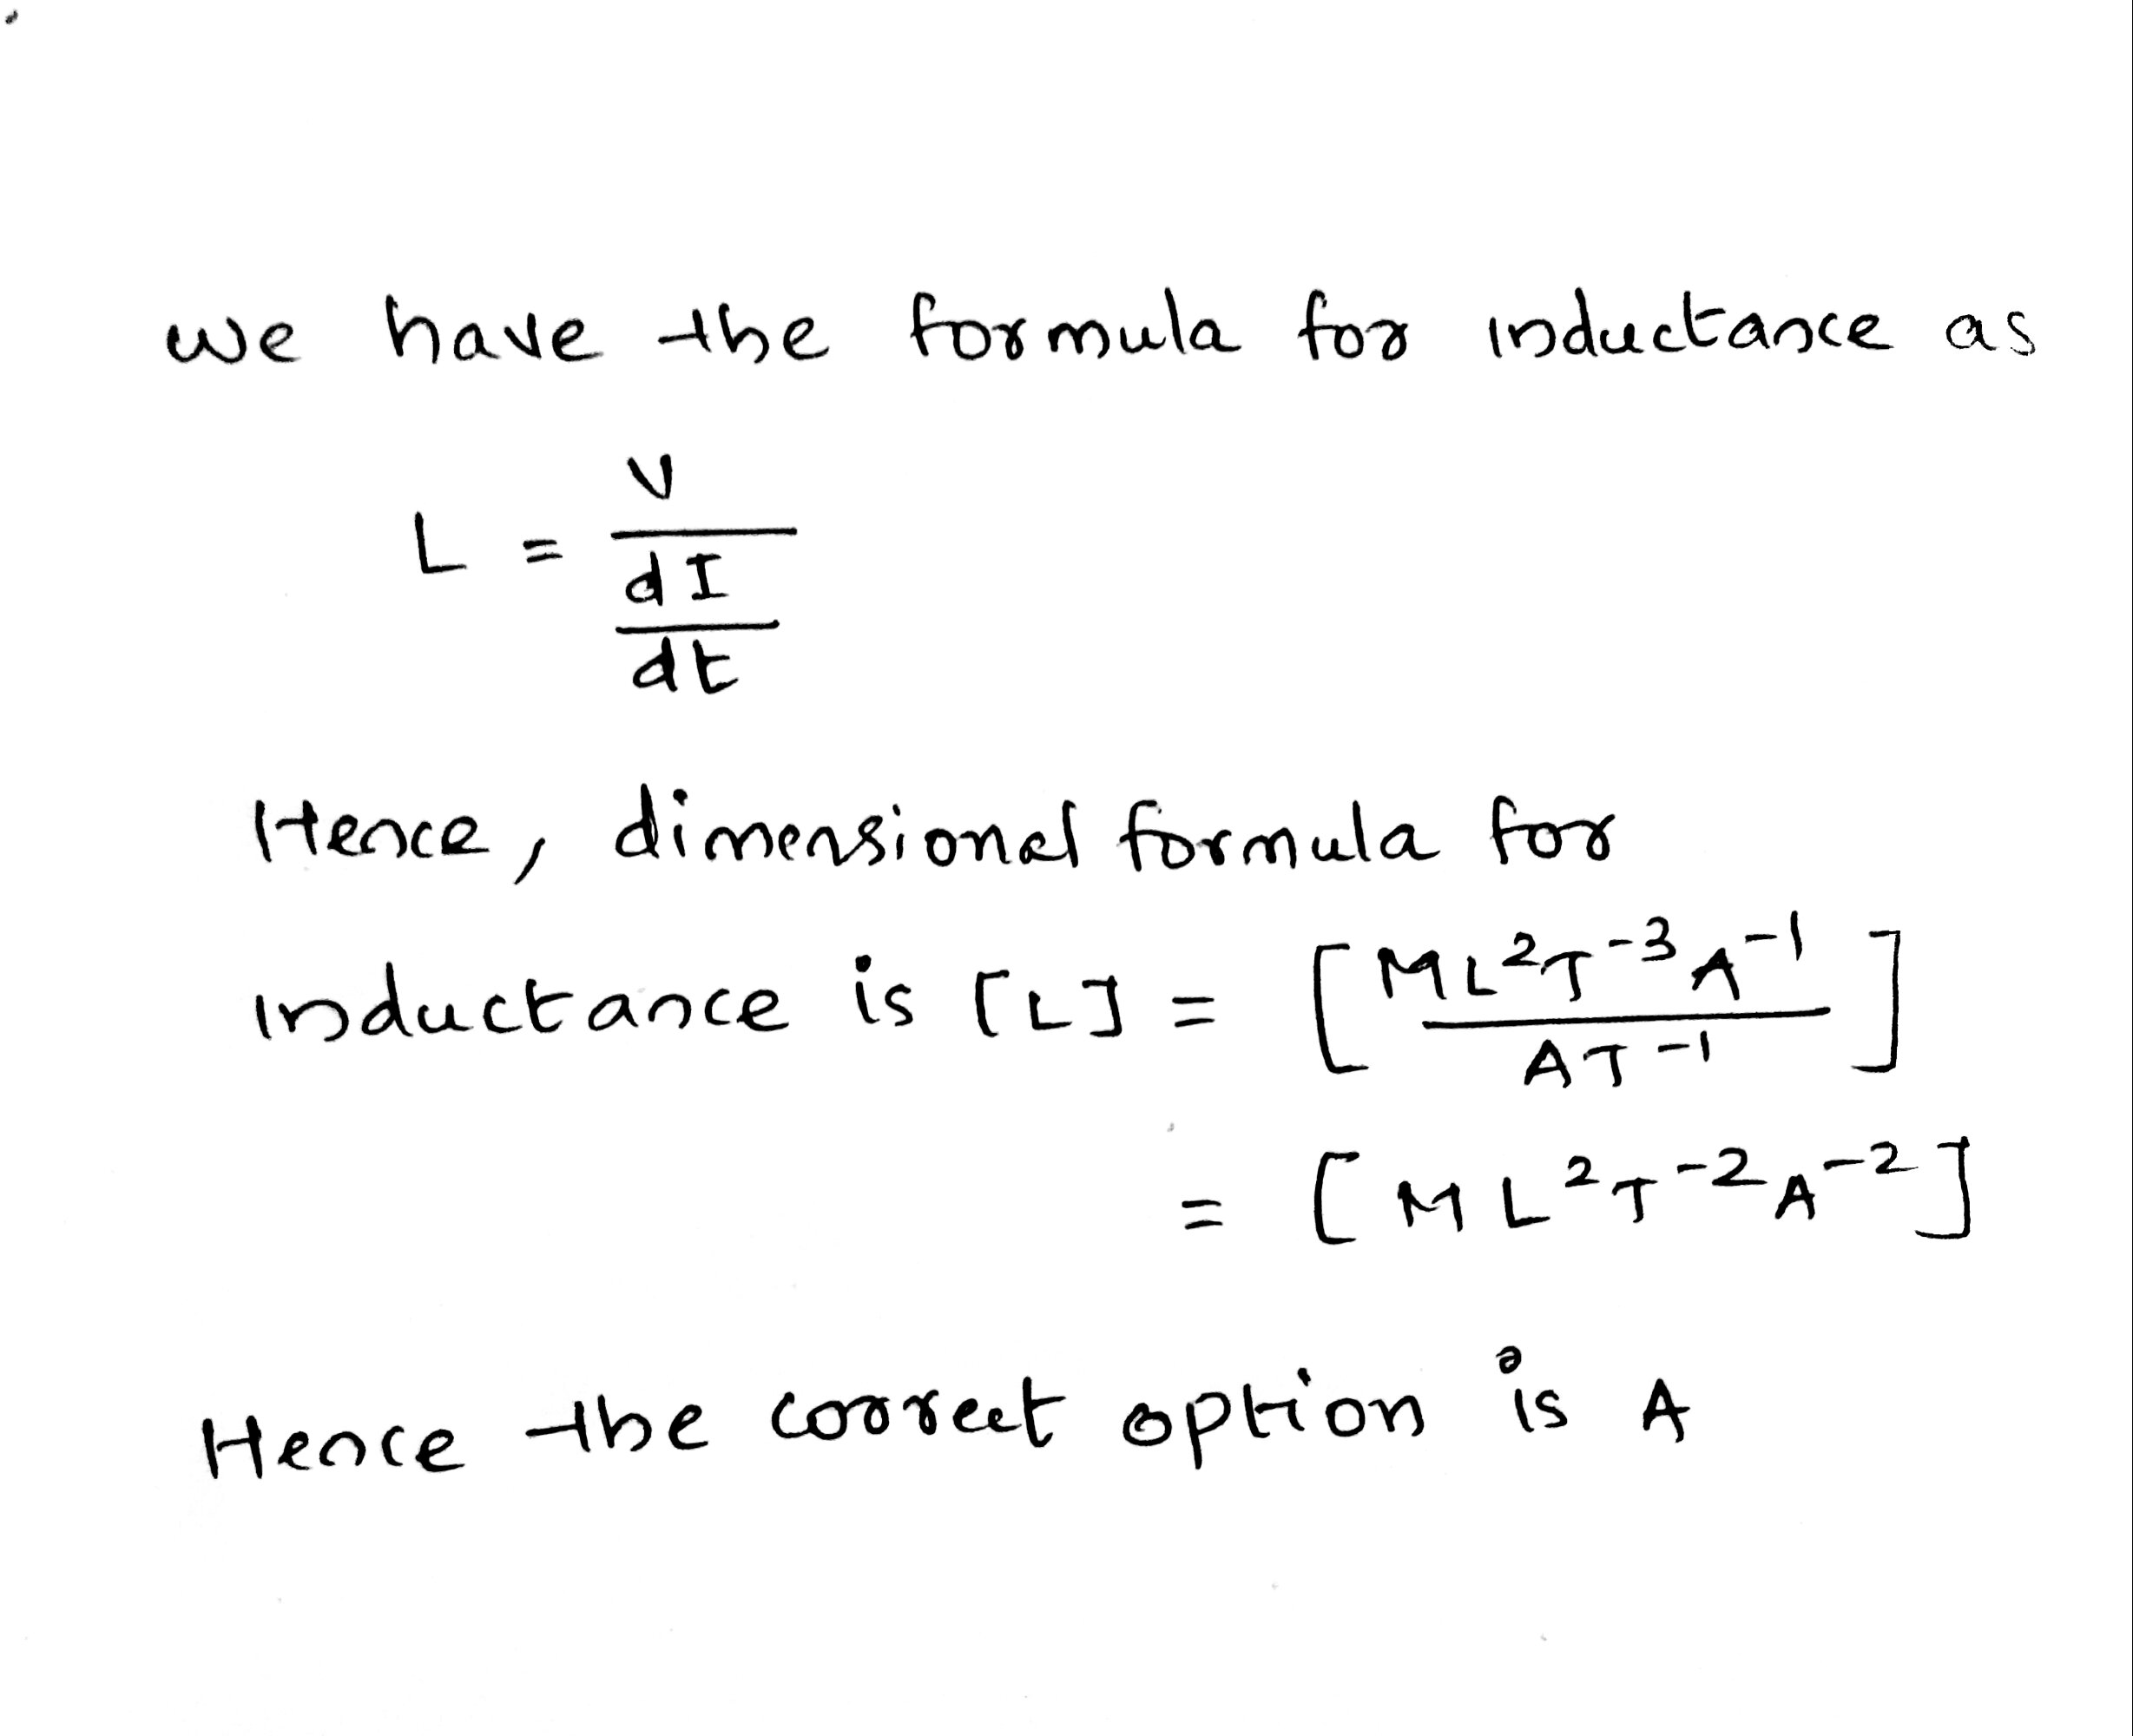 we have the formula for inductance as
L = V / (dI / dt)
Hence, dimensional formula for
inductance is [L] = [ML²T⁻³A⁻¹ / AT⁻¹]
= [ML²T⁻²A⁻²]
Hence the correct option is A